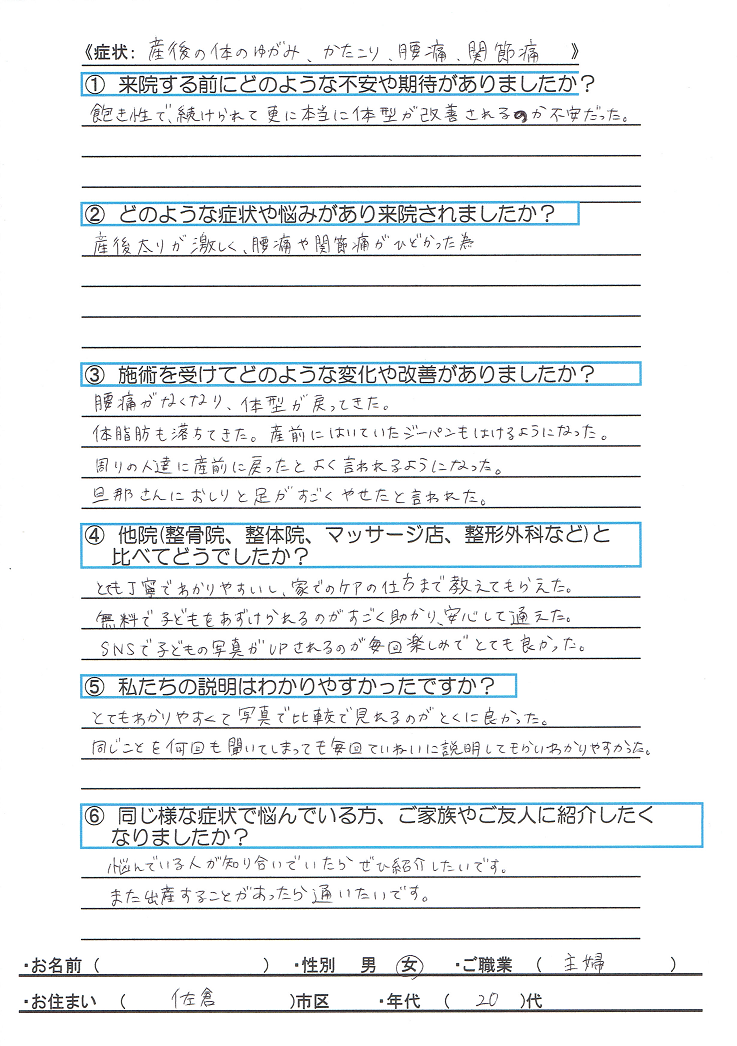 《症状: 産後の体のゆがみ、かたこり、腰痛、関節痛 》
① 来院する前にどのような不安や期待がありましたか？
飽き性で、続けられて更に本当に体型が改善されるのか不安だった。
② どのような症状や悩みがあり来院されましたか？
産後太りが激しく、腰痛や関節痛がひどかった為
③ 施術を受けてどのような変化や改善がありましたか？
腰痛がなくなり、体型が戻ってきた。
体脂肪も落ちてきた。産前にはいていたジーパンもはけるようになった。
周りの人達に産前に戻ったとよく言われるようになった。
旦那さんにおしりと足がすごくやせたと言われた。
④ 他院(整骨院、整体院、マッサージ店、整形外科など)と
比べてどうでしたか？
とても丁寧でわかりやすいし、家でのケアの仕方まで教えてもらえた。
無料で子どもをあずけられるのがすごく助かり、安心して通えた。
SNSで子どもの写真がUPされるのが毎回楽しみでとても良かった。
⑤ 私たちの説明はわかりやすかったですか？
とてもわかりやすくて写真で比較で見れるのがとくに良かった。
同じことを何回も聞いてしまっても毎回ていねいに説明してもらいわかりやすかった。
⑥ 同じ様な症状で悩んでいる方、ご家族やご友人に紹介したく
なりましたか？
悩んでいる人が知り合いでいたらぜひ紹介したいです。
また出産することがあったら通いたいです。
・お名前 ( ) ・性別 男 女 ・ご職業 ( 主婦 )
・お住まい ( 佐倉 )市区 ・年代 ( 20 )代